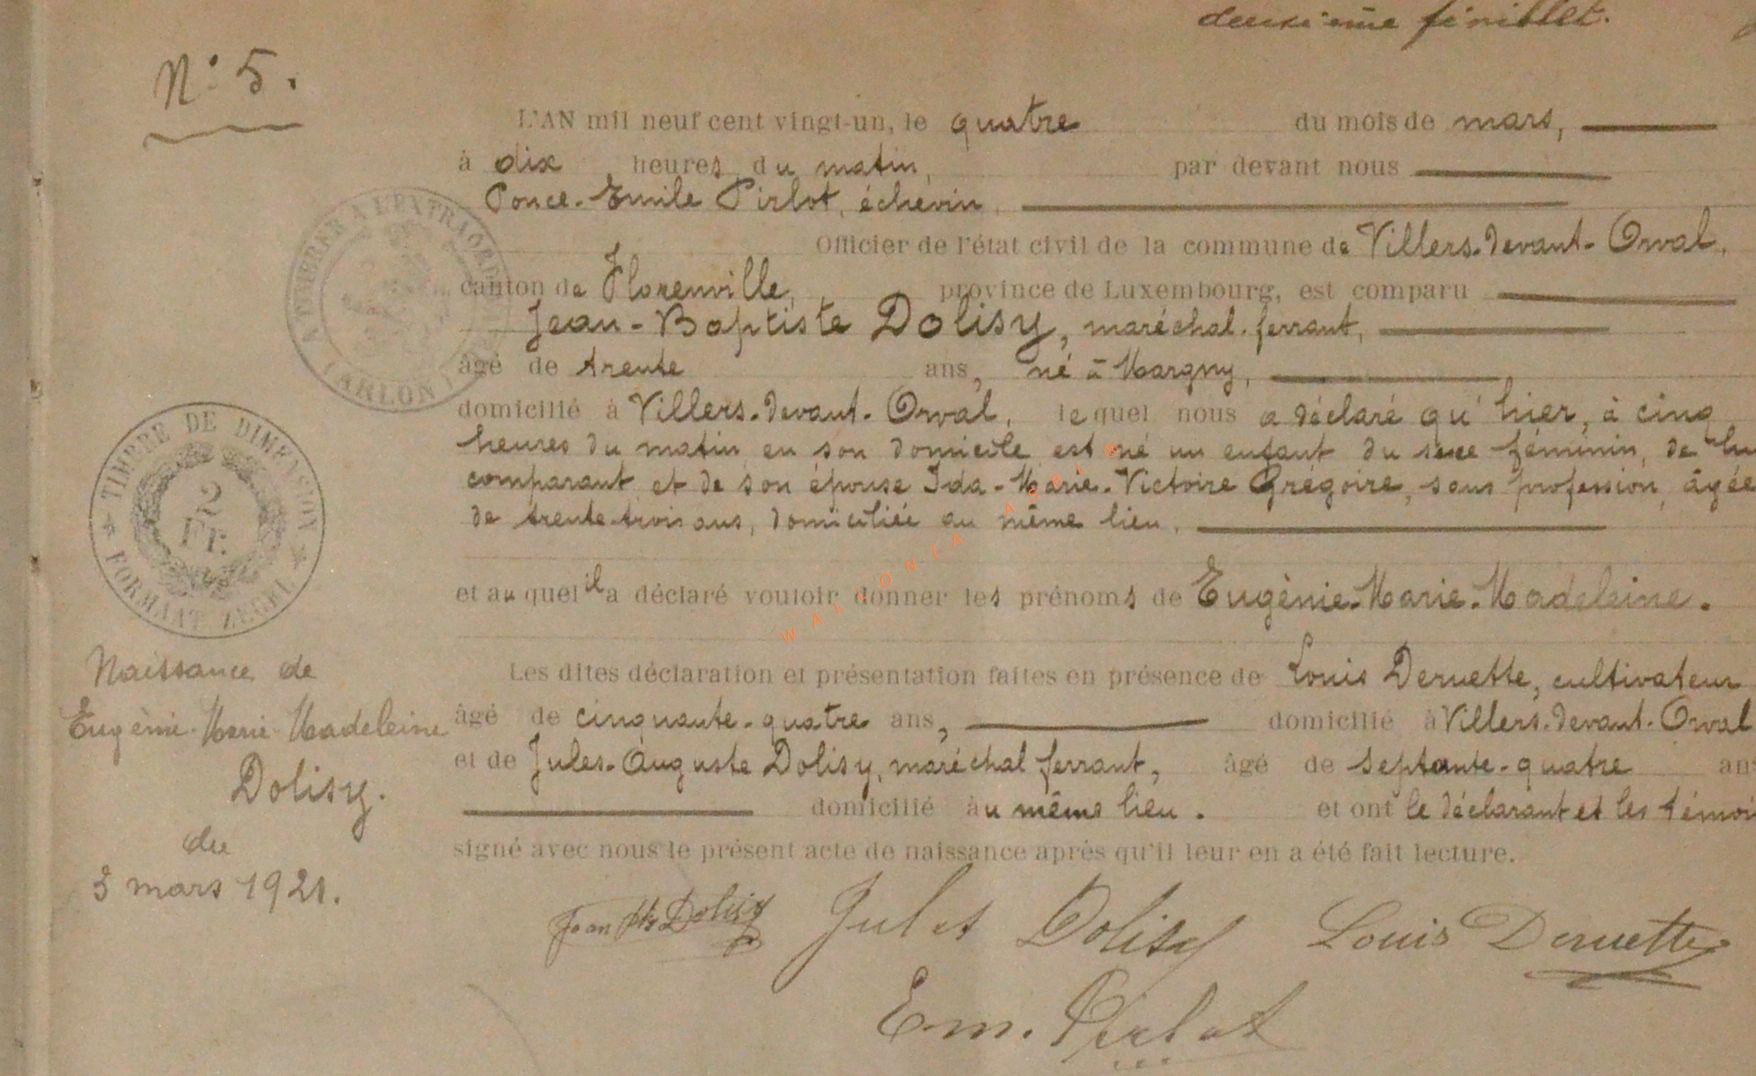 deuxième feuillet.
N° 5.
L'AN mil neuf cent vingt-un, le quatre du mois de mars,
à dix heures du matin, par devant nous
Ponce-Emile Pirlot, échevin,
Officier de l'état civil de la commune de Villers-devant-Orval,
canton de Florenville, province de Luxembourg, est comparu
Jean-Baptiste Dolisy, maréchal-ferrant,
âgé de trente ans, né à Margny,
domicilié à Villers-devant-Orval, lequel nous a déclaré qu'hier, à cinq
heures du matin en son domicile est né un enfant du sexe féminin, de lui
comparant et de son épouse Ida-Marie-Victoire Grégoire, sans profession, âgée
de trente-trois ans, domiciliée au même lieu,
et auquel il a déclaré vouloir donner les prénoms de Eugènie-Marie-Madeleine.
Les dites déclaration et présentation faites en présence de Louis Deruette, cultivateur
âgé de cinquante-quatre ans, domicilié à Villers-devant-Orval
et de Jules-Auguste Dolisy, maréchal ferrant, âgé de septante-quatre ans
domicilié au même lieu. et ont le déclarant et les témoi
signé avec nous le présent acte de naissance après qu'il leur en a été fait lecture.
Jean Bte Dolisy Jules Dolisy Louis Deruette
Em. Pirlot
A TIMBRER A L'EXTRAORD
ARLON
TIMBRE DE DIMENSION
2
FR.
FORMAAT ZEGEL
Naissance de
Eugènie-Marie-Madeleine
Dolisy.
du
3 mars 1921.
WALLONIA